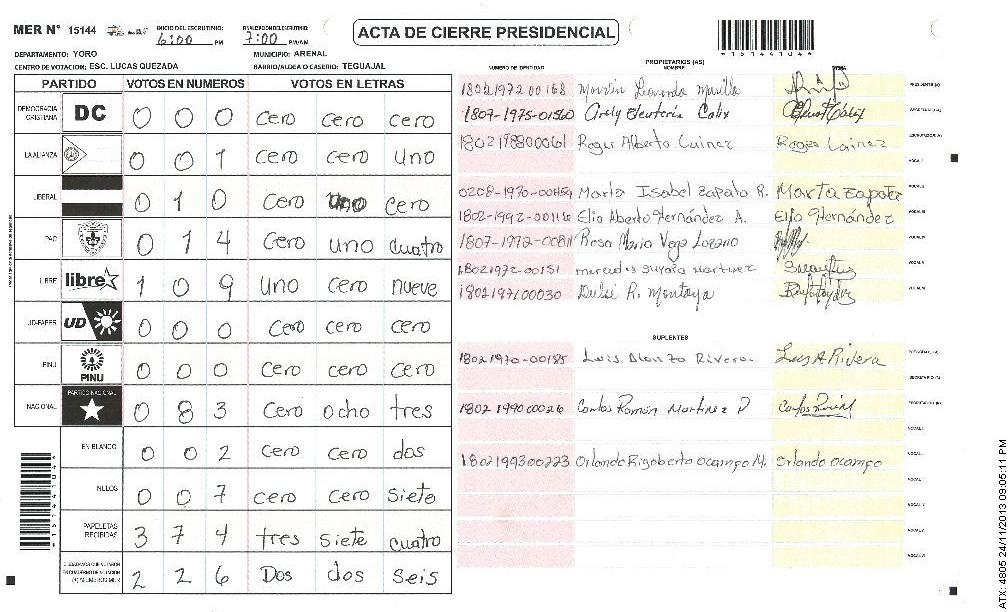 MER N° 15144
INICIO DEL ESCRUTINIO: 6:00 PM
FINALIZACION DEL ESCRUTINIO: 7:00 PM/AM
ACTA DE CIERRE PRESIDENCIAL
*15144104*
DEPARTAMENTO: YORO MUNICIPIO: ARENAL
CENTRO DE VOTACION: ESC. LUCAS QUEZADA BARRIO/ALDEA O CASERIO: TEGUAJAL
PARTIDO VOTOS EN NUMEROS VOTOS EN LETRAS
DEMOCRACIA CRISTIANA DC 0 0 0 Cero cero cero
LA ALIANZA 0 0 1 Cero cero uno
LIBERAL 0 1 0 Cero uno cero
PAC 0 1 4 Cero uno cuatro
LIBRE libre 1 0 9 uno cero nueve
UD-FAPER UD 0 0 0 Cero cero cero
PINU PINU 0 0 0 Cero cero cero
NACIONAL PARTIDO NACIONAL 0 8 3 Cero ocho tres
EN BLANCO 0 0 2 Cero cero dos
NULOS 0 0 7 cero cero siete
PAPELETAS RECIBIDAS 3 7 4 tres siete cuatro
CIUDADANOS QUE VOTARON EN CUADERNO DE VOTACION (+) MIEMBROS MER 2 2 6 Dos dos seis
PROPIETARIOS (AS)
NUMERO DE IDENTIDAD NOMBRE FIRMA
1802197200168 PRESIDENTE (A)
1807-1975-01560 Arely Eleuteria Calix SECRETARIO (A)
1802198800061 Roger Alberto Lainez Roger Lainez ESCRUTADOR (A)
VOCAL I
0208-1970-00459 Marta Isabel Zapata R. Marta Zapata VOCAL II
1802-1992-00116 Elio Alberto Hernández A. Elio Hernández VOCAL III
1807-1972-00811 Rosa Maria Vega Lozano VOCAL IV
18021972-00151 mercedes suyapa martinez VOCAL V
1802197100030 Dulse R. Montoya VOCAL VI
SUPLENTES
1802 1970-00185 Luis Alonzo Rivera Luis A Rivera PRESIDENTE (A)
SECRETARIO (A)
1802 199000026 Carlos Román Martinez P ESCRUTADOR (A)
VOCAL I
1802199300223 Orlando Rigoberto Ocampo M. Orlando ocampo VOCAL II
VOCAL III
VOCAL IV
VOCAL V
VOCAL VI
*15144104*
ATX: 4805 24/11/2013 09:05:11 PM